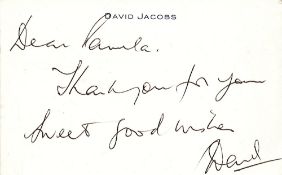 DAVID JACOBS
Dear Pamela.
Thank you for your
sweet good wishes
David